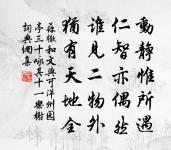 動靜惟所遇
仁智亦偶然
誰見二物外
猶有天地全
蘇轍和文與可洋州園
亭三十咏其十一樂榭
詞典網集